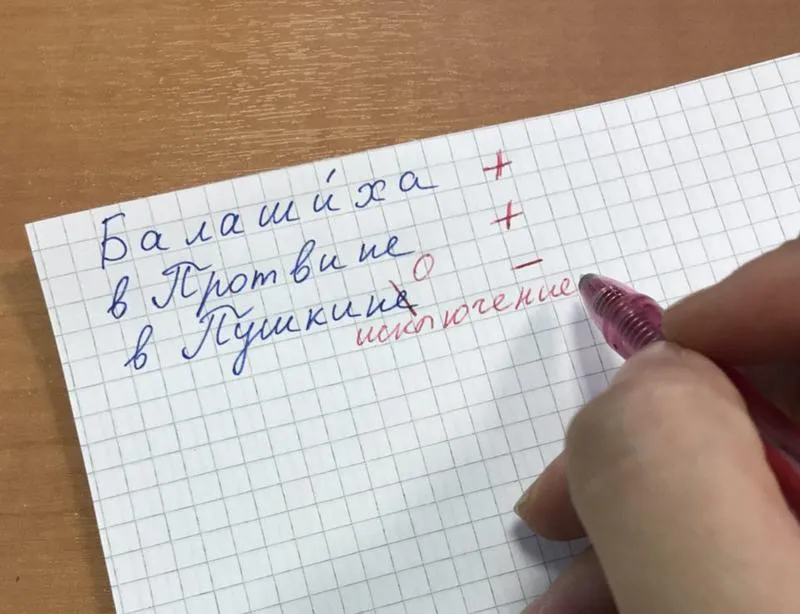 Балаши́ха +
в Протвине +
в Пушкине о –
исключение